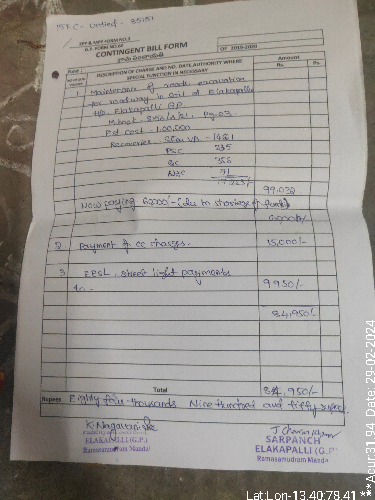 ZPP & MPP FORM NO.3
G.P. FORM NO.62
CONTINGENT BILL FORM
OF 2019-2020
DESCRIPTION OF CHARGE AND NO. DATE AUTHORITY WHERE
SPECIAL FUNCTION IN NECESSARY
Amount
Rs. Ps.
1 Maintenance of roads excavation
for roadway in soil of Elakapalle
H/o. Elakapalli G.P.
Pg-03
Est cost - 1,00,000
Recoveries - 1421
235
356
NAC 71
99,032
Now paying 60000/- (due to shortage of funds)
60000/-
2 Payment of cc charges. 15,000/-
3 EESL street light payments
9950/-
84,950/-
Total 84,950/-
Rupees Eighty four thousands Nine hundred and fifty rupees
K. Nagavani
ELAKAPALLI (G.P.)
Ramasamudram Mandal
SARPANCH
ELAKAPALLI (G.P.)
Ramasamudram Manda
Lat:Lon-13.40:78.41 ***Acur:31.94 Date,29-02-2024